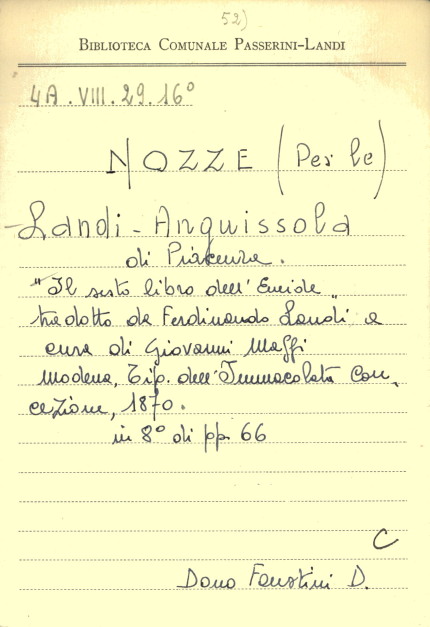 52)
BIBLIOTECA COMUNALE PASSERINI-LANDI
4A.VIII.29.16°
NOZZE (Per le)
Landi-Anguissola
di Piacenza.
"Il sesto libro dell'Eneide„
tradotto da Ferdinando Landi a
cura di Giovanni Maffi
Modena, Tip. dell'Immacolata Con-
cezione, 1870.
in 8° di pp. 66
C
Dono Faustini D.